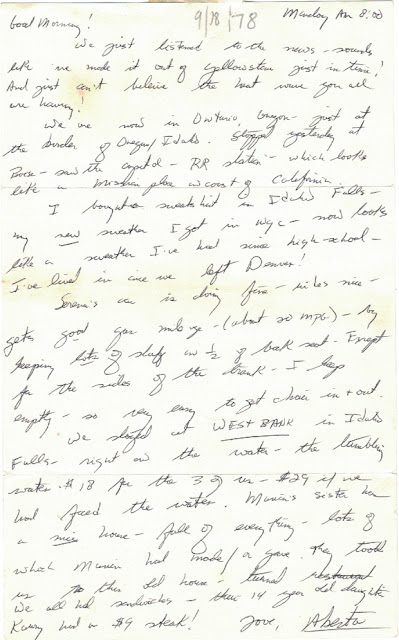 9/18/78
Monday AM 8:00
Good Morning!
We just listened to the news - sounds
like we made it out of Yellowstone just in time!
And just can't beleive the heat wave you all
are having!
We are now in Ontario, Oregon - just at
the border of Oregon/Idaho. Stopped yesterday at
Boise - saw the capitol - RR station - which looks
like a mission place w coast of California.
I bought a sweatshirt in Idaho Falls -
my new sweater I got in - now looks
like a sweater I've had since high school -
I've lived in since we left Denver!
car is doing fine - rides nice -
gets good gas mileage - (about 20 mpg) - by
keeping lots of stuff in ½ of back seat. Except
for the sides of the trunk - I keep
empty - so very easy to get chair in + out.
We stayed at WEST BANK in Idaho
Falls - right on the water - the tumbling
water. $18 for the 3 of us - $29 if we
had faced the water. sister has
a nice house - full of everything - lots of
which had made/or gave. They took
us to this old house - turned restaurant
We all had sandwiches - their 14 year old daughter
had a $9 steak! Love, Alberta